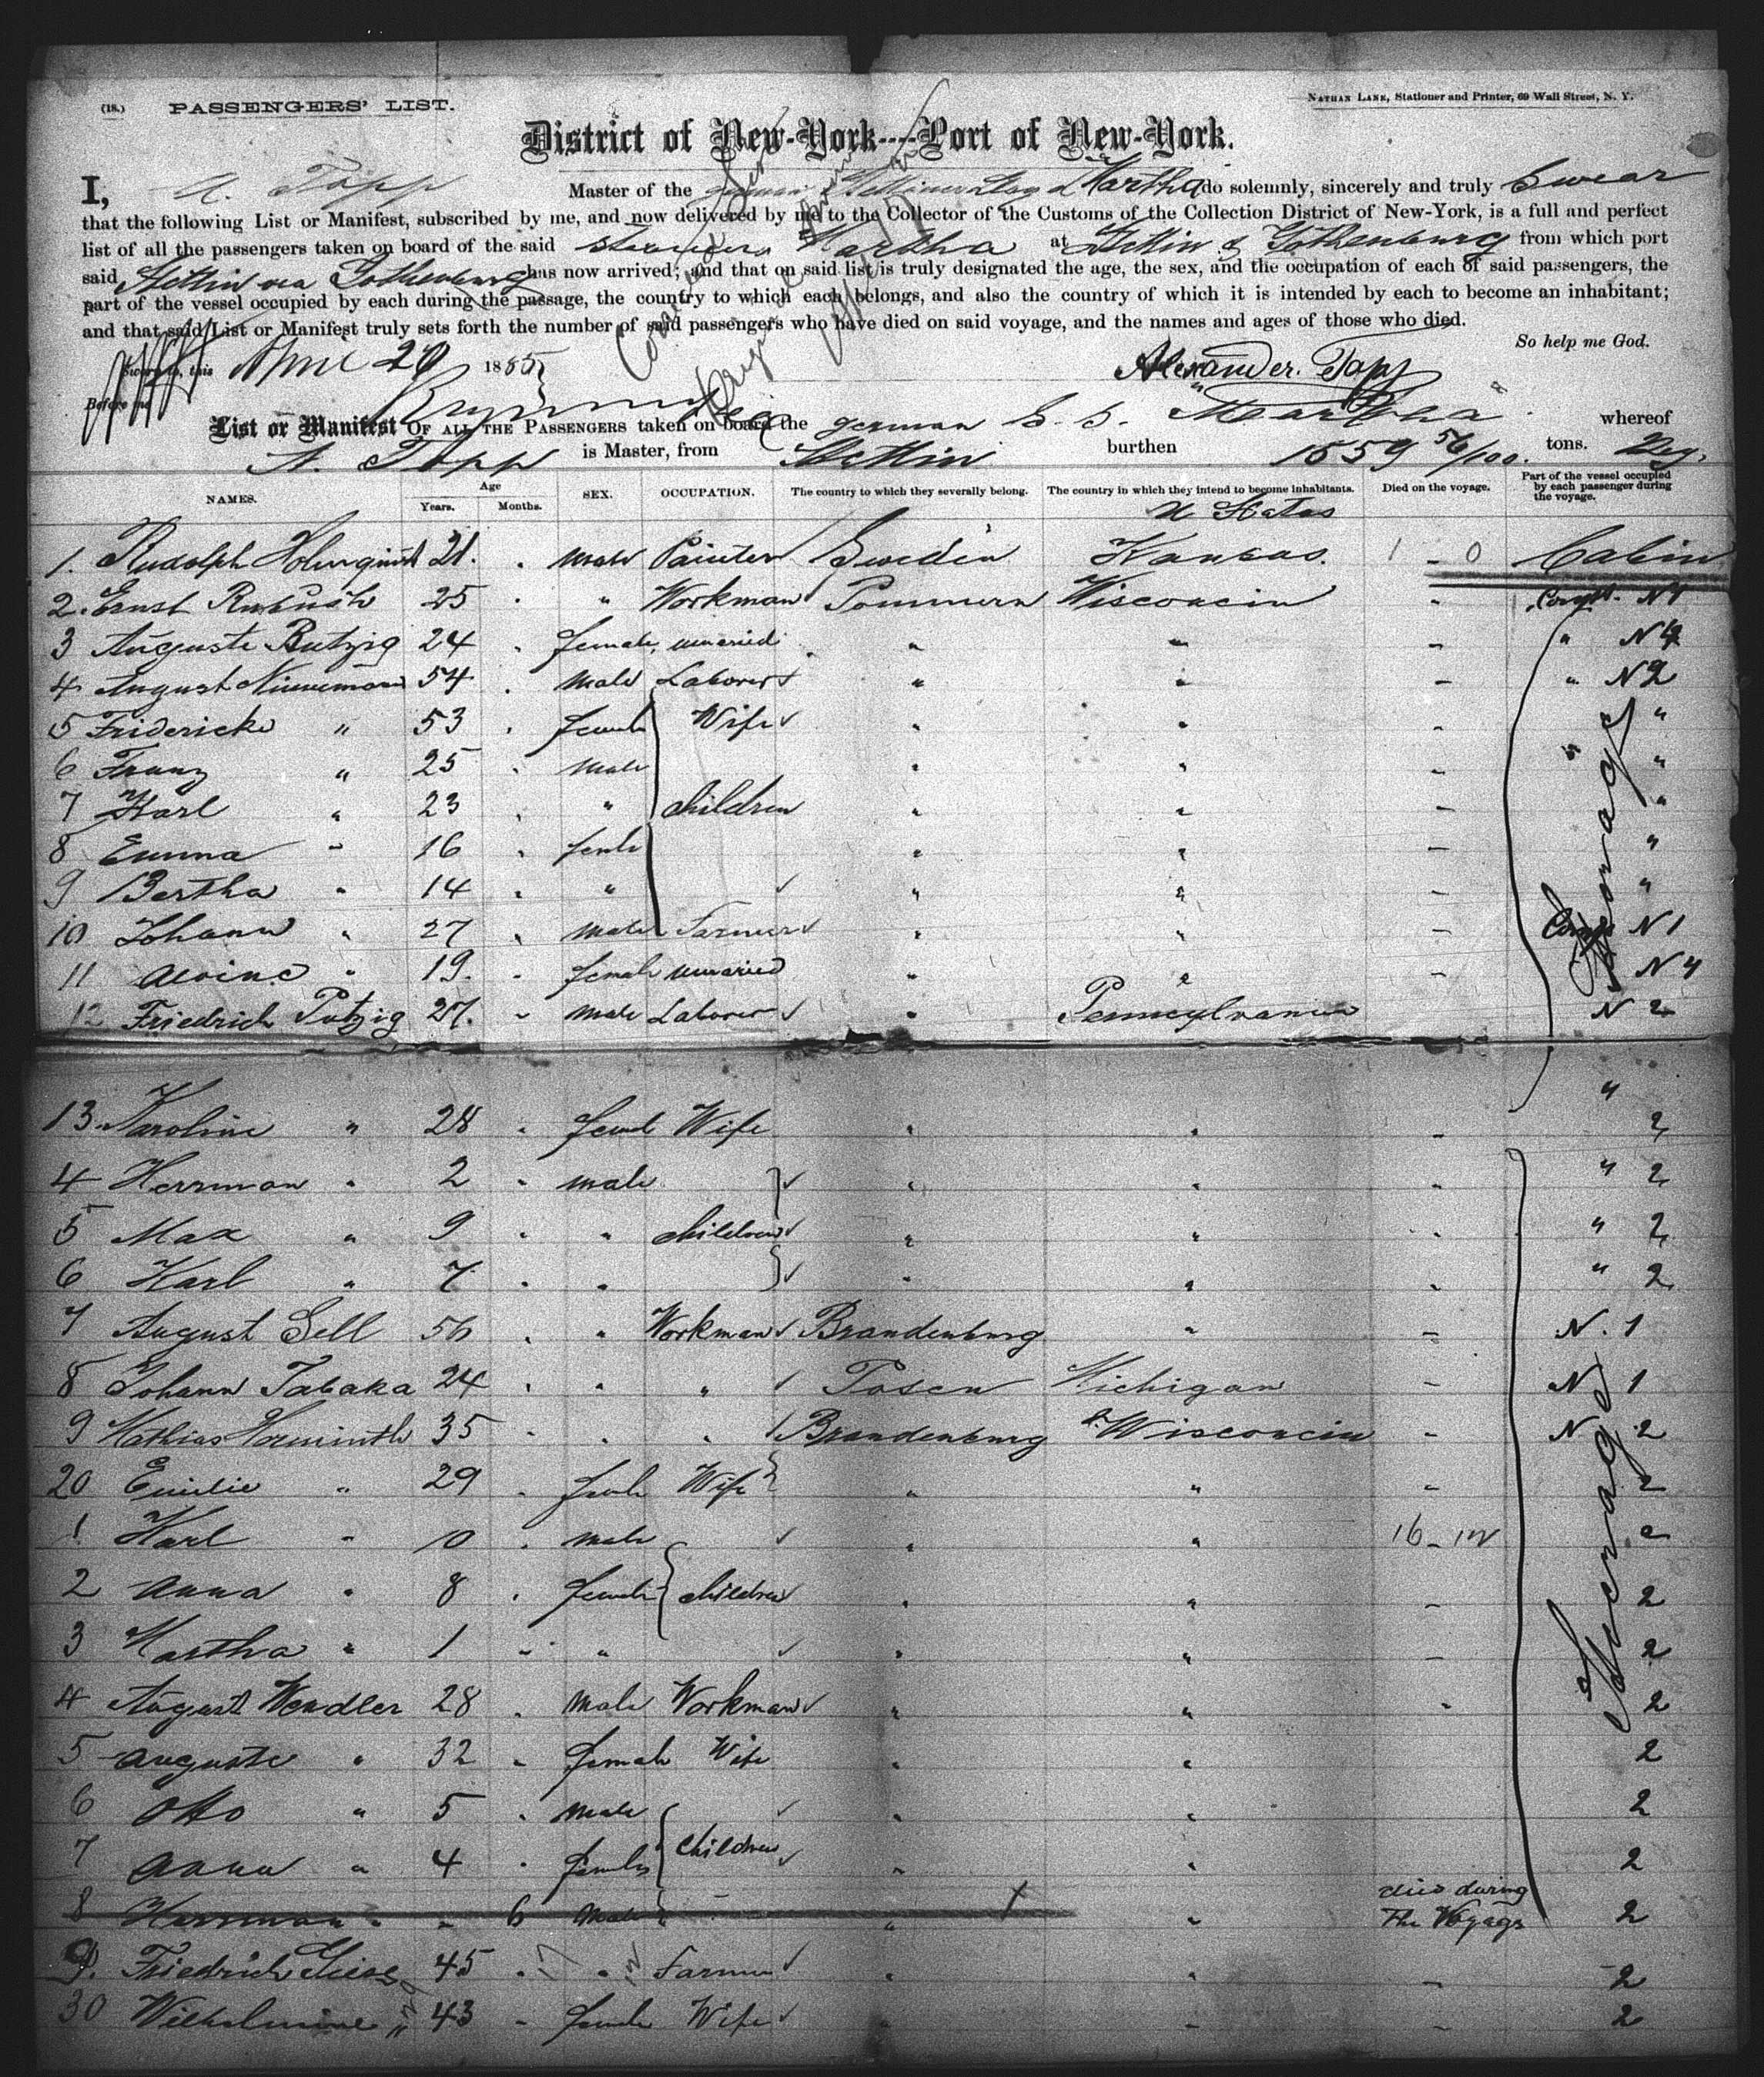 (18.) PASSENGERS' LIST.
NATHAN LANE, Stationer and Printer, 69 Wall Street, N. Y.
District of New-York----Port of New-York.
I, A. Tapp Master of the german Stettiner Lloyd Martha do solemnly, sincerely and truly Swear
that the following List or Manifest, subscribed by me, and now delivered by me to the Collector of the Customs of the Collection District of New-York, is a full and perfect
list of all the passengers taken on board of the said steamer Martha at Stettin & Gothenburg from which port
said Stettin via Gothenburg has now arrived; and that on said list is truly designated the age, the sex, and the occupation of each of said passengers, the
part of the vessel occupied by each during the passage, the country to which each belongs, and also the country of which it is intended by each to become an inhabitant;
and that said List or Manifest truly sets forth the number of said passengers who have died on said voyage, and the names and ages of those who died.
So help me God.
Sworn to, this April 20 1885
Alexander Tapp
Before me
List or Manifest OF ALL THE PASSENGERS taken on board the german S. S. "Martha" whereof
A. Tapp is Master, from Stettin burthen 1559 56/100 tons. Reg.
NAMES. Age Years. Months. SEX. OCCUPATION. The country to which they severally belong. The country in which they intend to become inhabitants. Died on the voyage. Part of the vessel occupied by each passenger during the voyage.
U States
1. Rudolph 21. male Painter Sweden Kansas. 1 - 0 Cabin
2. Ernst 25 " Workman Pommern Wisconsin - Compt. N 1
3 Auguste Butzig 24 female unmaried " " - " N 4
4 August 54 male Laborer " " - " N 2
5 Friedericke " 53 female Wife " " - "
6 Franz " 25 male " " - "
7 Karl " 23 " children " " - "
8 Emma " 16 female " " - "
9 Bertha " 14 " " " - "
10 Johann " 27 male Farmer " " - Compt N 1
11 Alvine " 19. female unmaried " " - N 4
12 Friedrich Putzig 27. male Laborer " Pennsylvania N 2
Steerage
13. Karoline " 28 female Wife " " - " 2
4 Herrman " 2 male " " - " 2
5 Max " 9 " children " " - " 2
6 Karl " 7 " " " - " 2
7 August Sell 56 " Workman Brandenburg " - N. 1
8 Johann Tabaka 24 " " Posen Michigan - N 1
9 Mathias 35 " " Brandenburg Wisconsin - N 2
20 Emilie " 29 female Wife " " - 2
1 Karl " 10 male " " 16 - 2
2 Anna " 8 female children " " - 2
3 Martha " 1 " " " - 2
4 August Wendler 28 male Workman " " - 2
5 Auguste " 32 female Wife " " 2
6 Otto " 5 male " " 2
7 Anna " 4 female children " " 2
8 Herrman " - 6 male " " died during the Voyage 2
Steerage
9. Friedrich 45 " Farmer " " - 2
30 Wilhelmine " 43 female Wife " " - 2